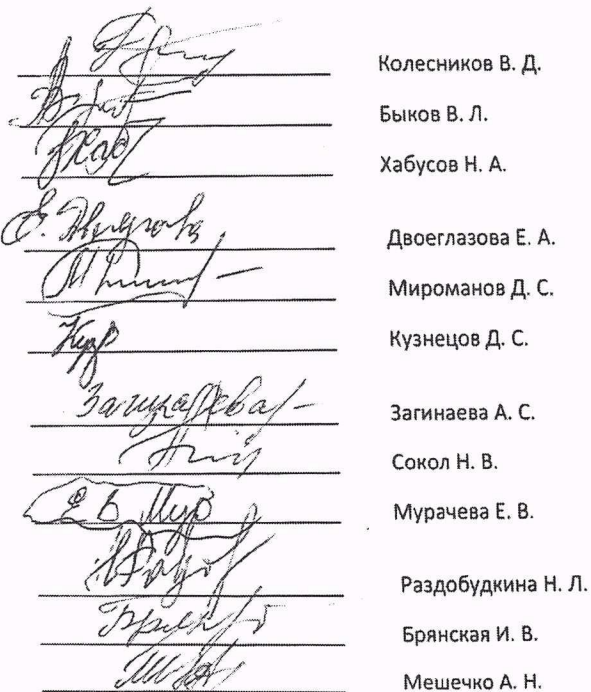 Колесников В. Д.
Быков В. Л.
Хаб Хабусов Н. А.
Двоеглазова Е. А.
Мироманов Д. С.
Куз Кузнецов Д. С.
Загинаева Загинаева А. С.
Сокол Н. В.
Е В Мур Мурачева Е. В.
Раздобудкина Н. Л.
Брянская И. В.
Мешечко А. Н.